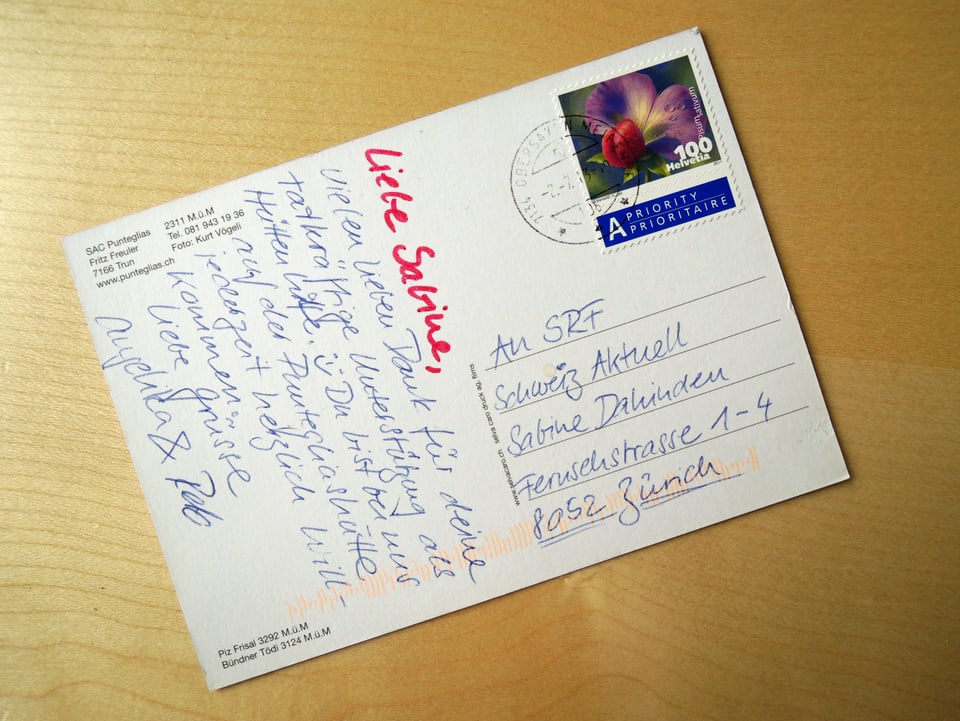 SAC Punteglias
Fritz Freuler
7166 Trun
www.punteglias.ch
2311 M.ü.M
Tel. 081 943 19 36
Foto: Kurt Vögeli
Liebe Sabine,
vielen lieben Dank für deine
tatkräftige Unterstützung als
Hüttenhilfe. Du bist bei uns
auf der Puntegliashütte
jederzeit herzlich will-
kommen!
liebe grüsse
Angelika & Pab
Piz Frisal 3292 M.ü.M
Bündner Tödi 3124 M.ü.M
www.selvacaro.ch selva caro druck ag, flims
pisum sativum
100
Helvetia
A PRIORITY
PRIORITAIRE
7134 OBERSAXEN
An SRF
Schweiz Aktuell
Sabine Dahinden
Fernsehstrasse 1-4
8052 Zürich